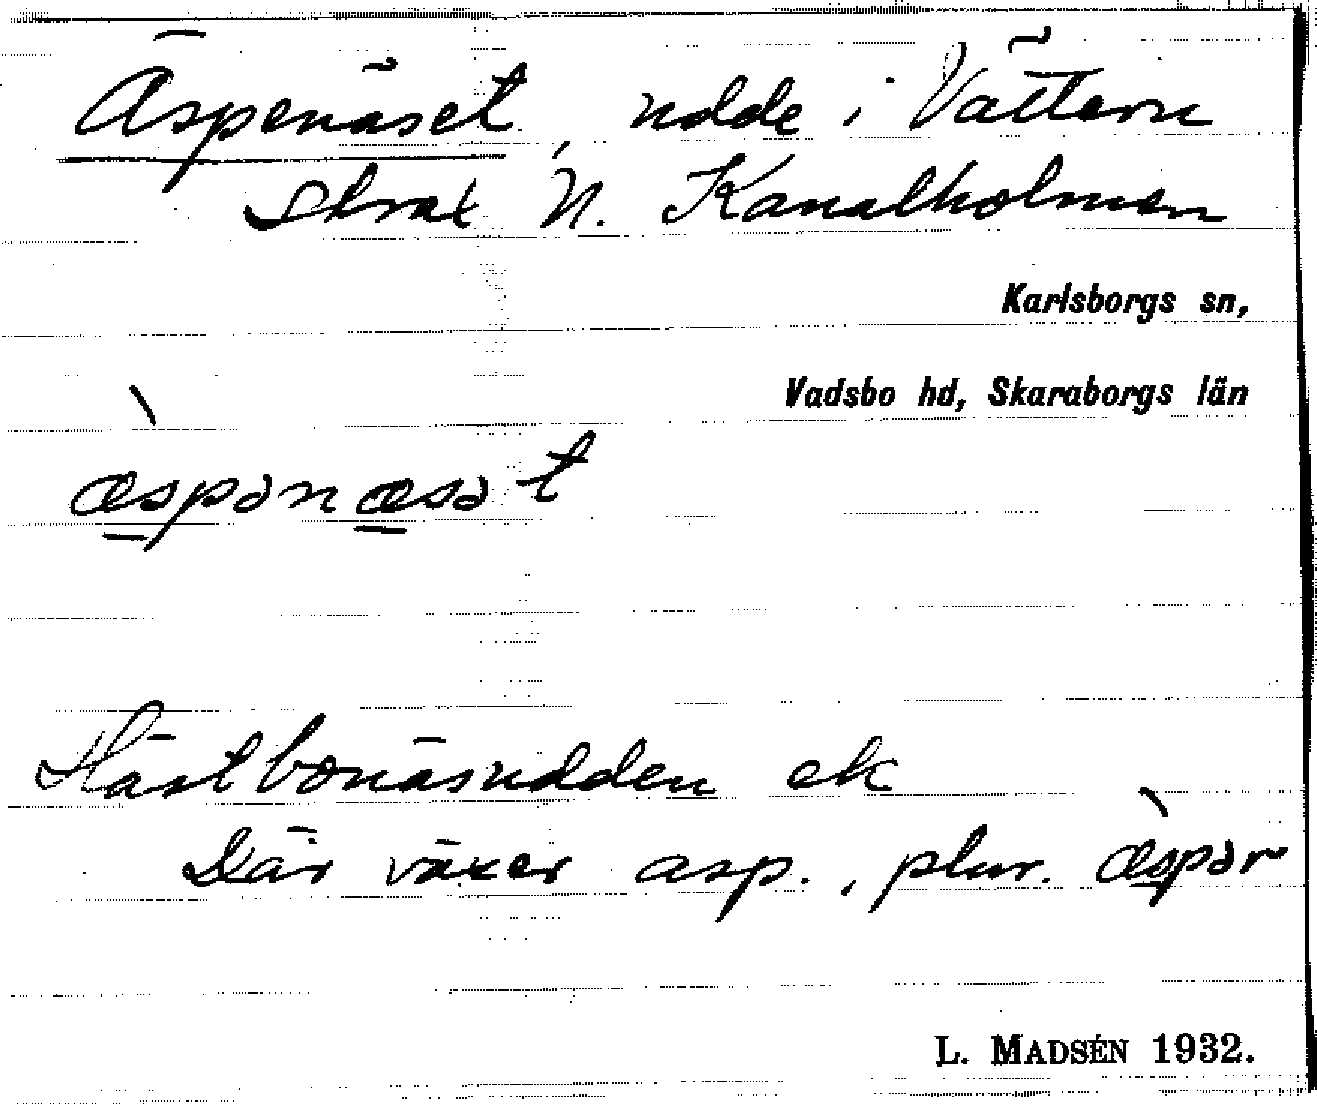 Äspenäset, udde i Vättern
strax N. Kanalholmen
Karlsborgs sn,
Vadsbo hd, Skaraborgs län
æ̀spənæsət
Hästbonäsudden ek
Där växer asp., plur. æ̀spər
L. MADSÉN 1932.